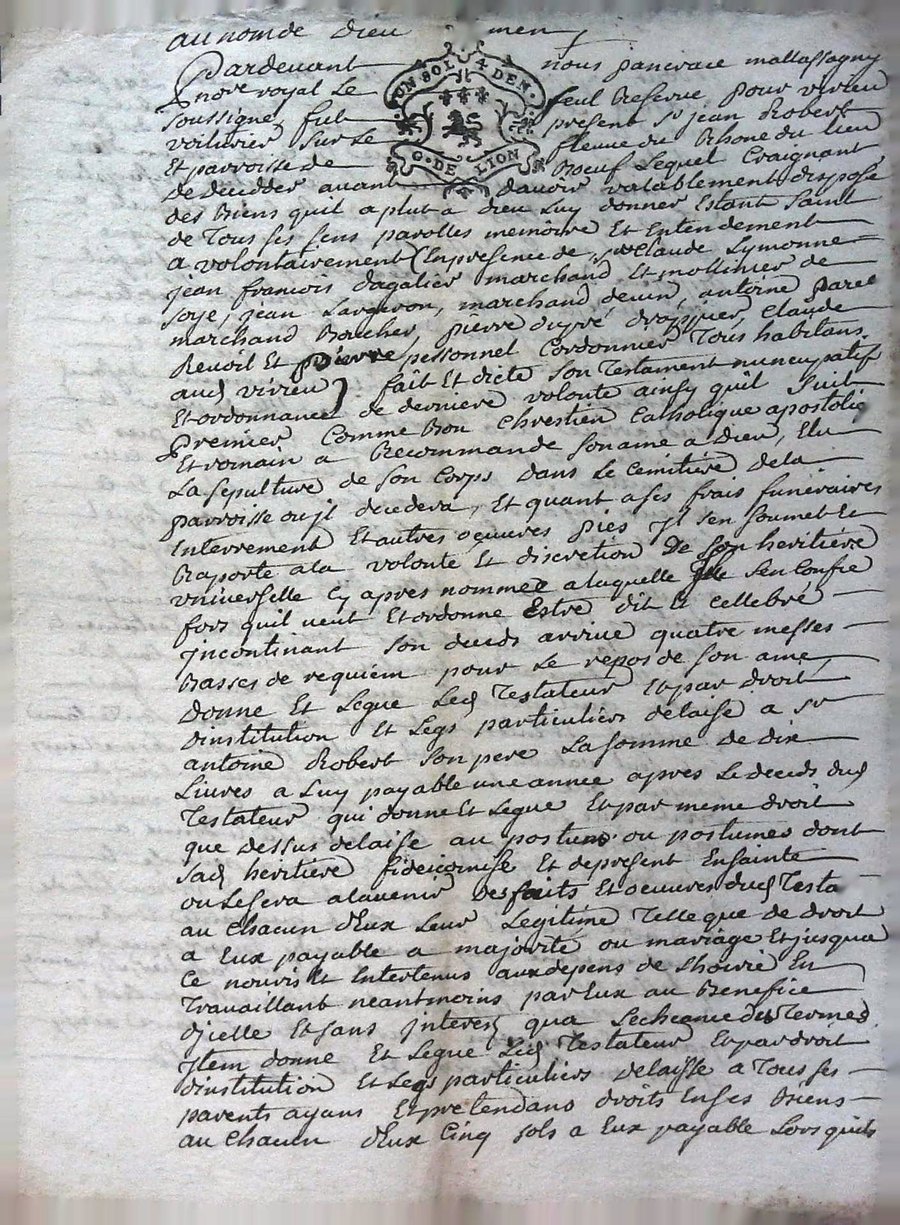 au nom de Dieu amen
UN SOL 4 DEN.
G. DE LION
Pardevant nous pancrace mallassagny
nore royal Le seul Reservé pour virieu
soussigne, fut present sr jean Robert
voiturier sur Le fleuve du Rhone du lieu
Et parroisse de Boeuf Lequel Craignant
de decedder avant davoir valablement disposé
des Biens quil a plut a dieu Luy donner Estant Saint
de Tous ses sens parolles memoire Et Entendement
a volontairement (En presence de, sr Claude Symonne
jean francois dagalier marchand Et mollinier de
soye, jean Largeron, marchand devin, antoine paret
marchand Boucher, pierre dupré drappier, Claude
Revoil Et pierre pessonnel Cordonnier Tous habitans
aud virieu) fait Et dicté son Testament nuncupatif
Et ordonnance de derniere volonté ainsy quil suit
Premier Comme Bon Chrestien Catholique apostoliq
Et romain a Recommandé son ame a Dieu, Elu
La sepulture de son Corps dans Le Cemitiere dela
parroisse ou jl decedera, Et quant a ses frais funeraires
Enterrement Et autres oeuvres pies jl sen soumet Et
Raporte ala volonté Et discretion De son heritiere
vniverselle Cy apres nommée a laquelle jl sen Confie
fors quil veut Et ordonne Estre dit Et cellebré
jncontinant son deceds arrivé quatre messes
Basses de requiem pour Le repos de son ame,
Donne Et Legue Led Testateur Et par droit
dinstitution Et Legs particuliers delaisse a sr
antoine Robert son pere La somme de dix
Livres a Luy payable une année apres Le deceds dud
Testateur qui donne Et Legue Et par meme droit
que dessus delaisse au postume ou postumes dont
sad heritiere fideicomise Et depresent Enceinte
ou Le sera alavenir des faits Et oeuvres dud Testa
au Chacun dEux Leur Legitime Telle que de droit
a Eux payable a majorité ou mariage Et jusqua
Ce nouris Et Entertenus aux depens de Lhoirie En
Travaillant neantmoins par Eux au Benefice
djcelle Et sans jnterez qua Lecheance des Termes
jtem donne Et Legue Led Testateur Et par droit
dinstitution Et Legs particuliers delaisse a Tous ses
parents ayans Et pretendans droits En ses Biens
au Chacun dEux Cinq sols a Eux payable Lors quils